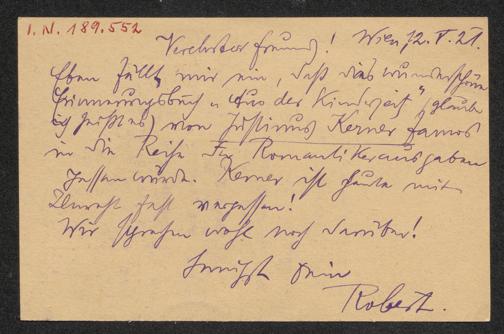 I. N. 189.552
Verehrter Freund! Wien 12. V. 21.
Eben fällt mir ein, daß das wunderschöne
Erinnerungsbuch „Aus der Kinderzeit" (glaube
ich heißt es) von Justinus Kerner famos
in die Reihe der Romantikerausgaben
passen würde. Kerner ist heute mit
Unrecht fast vergessen!
Wir sprechen wohl noch darüber!
Innigst Dein
Robert.